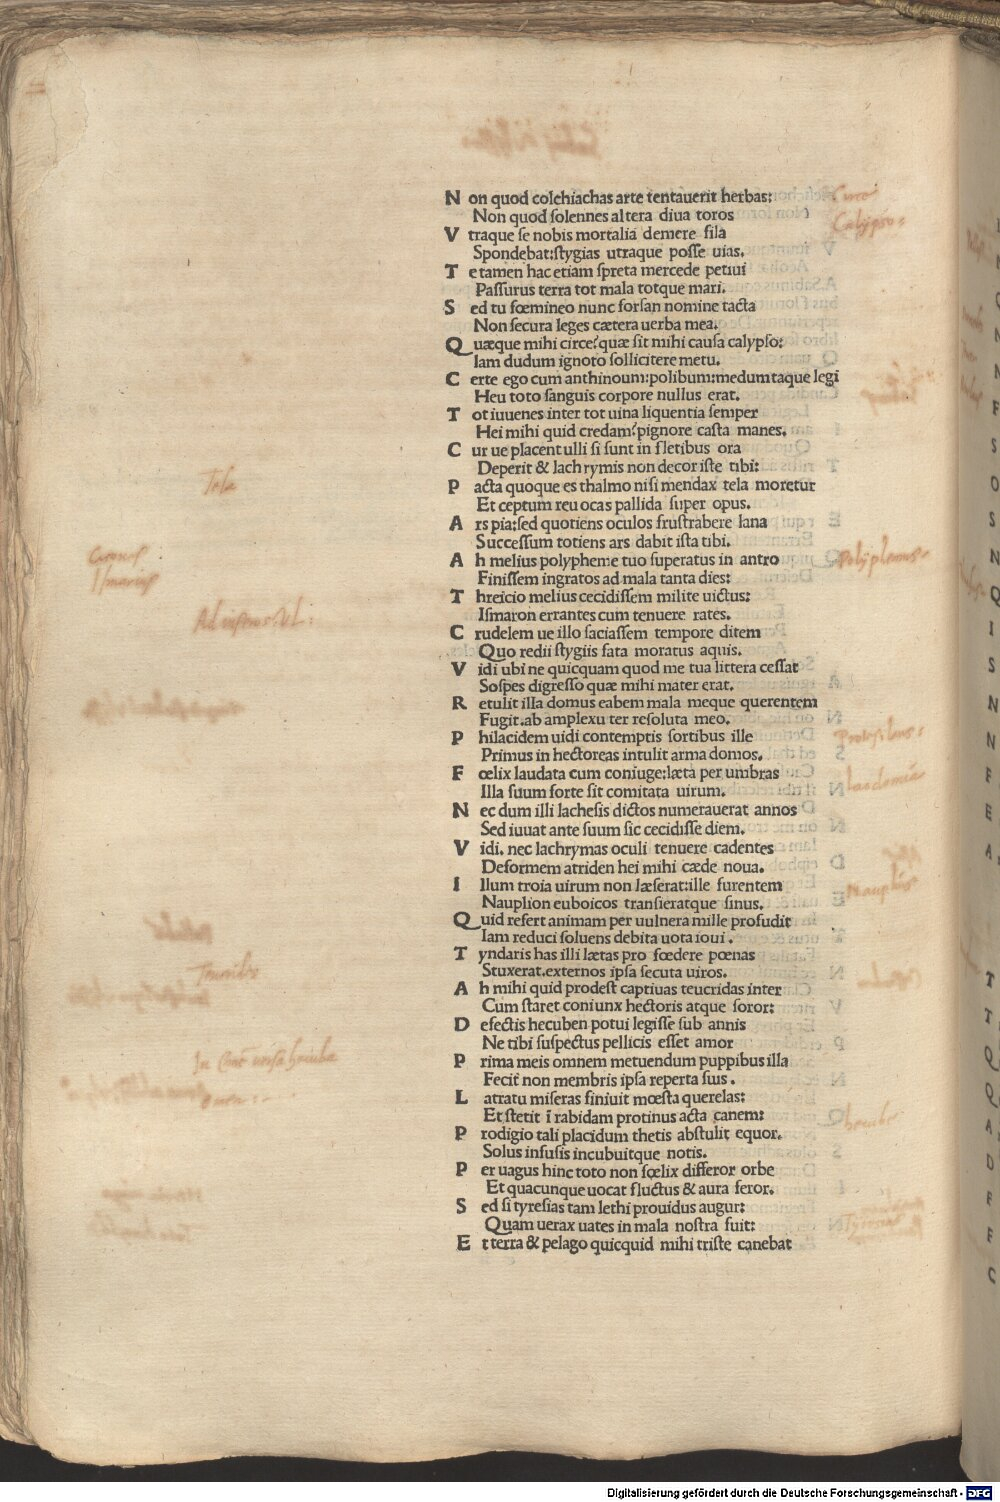 Non quod colchiachas arte tentauerit herbas:
Non quod solennes altera diua toros
Vtraque se nobis mortalia demere fila
Spondebat:stygias utraque posse uias.
Te tamen hac etiam spreta mercede petiui
Passurus terra tot mala totque mari.
Sed tu fœmineo nunc forsan nomine tacta
Non secura leges cætera uerba mea.
Quæque mihi circe?quæ sit mihi causa calypso:
Iam dudum ignoto sollicitere metu.
Certe ego cum anthinoum:polibum:medumtaque legi
Heu toto sanguis corpore nullus erat.
Tot iuuenes inter tot uina liquentia semper
Hei mihi quid credam?pignore casta manes.
Cur ue placent ulli si sunt in fletibus ora
Deperit & lachrymis non decor iste tibi:
Pacta quoque es thalmo nisi mendax tela moretur
Et ceptum reuocas pallida super opus.
Ars pia:sed quotiens oculos frustrabere lana
Successum totiens ars dabit ista tibi.
Ah melius polypheme tuo superatus in antro
Finissem ingratos ad mala tanta dies:
Threicio melius cecidissem milite uictus:
Ismaron errantes cum tenuere rates.
Crudelem ue illo saciassem tempore ditem
Quo redii stygiis fata moratus aquis.
Vidi ubi ne quicquam quod me tua littera cessat
Sospes digresso quæ mihi mater erat.
Retulit illa domus eabem mala meque querentem
Fugit.ab amplexu ter resoluta meo.
Philacidem uidi contemptis sortibus ille
Primus in hectoreas intulit arma domos.
Fœlix laudata cum coniuge:læta per umbras
Illa suum forte sit comitata uirum.
Nec dum illi lachesis dictos numerauerat annos
Sed iuuat ante suum sic cecidisse diem.
Vidi. nec lachrymas oculi tenuere cadentes
Deformem atriden hei mihi cæde noua.
Illum troia uirum non læserat:ille furentem
Nauplion euboicos transieratque sinus.
Quid refert animam per uulnera mille profudit
Iam reduci soluens debita uota ioui.
Tyndaris has illi lætas pro fœdere pœnas
Stuxerat.externos ipsa secuta uiros.
Ah mihi quid prodest captiuas teucridas inter
Cum staret coniunx hectoris atque soror:
Defectis hecuben potui legisse sub annis
Ne tibi suspectus pellicis esset amor
Prima meis omnem metuendum puppibus illa
Fecit non membris ipsa reperta suis.
Latratu miseras finiuit mœsta querelas:
Et stetit ī rabidam protinus acta canem:
Prodigio tali placidum thetis abstulit equor.
Solus infusis incubuitque notis.
Per uagus hinc toto non fœlix differor orbe
Et quacunque uocat fluctus & aura feror.
Sed si tyresias tam lethi prouidus augur:
Quam uerax uates in mala nostra fuit:
Et terra & pelago quicquid mihi triste canebat
Circe
Calypso
Tela
Polyphemus
Ismarius
Protesilaus
laodamia
Nauplius
hecube
Digitalisierung gefördert durch die Deutsche Forschungsgemeinschaft - DFG